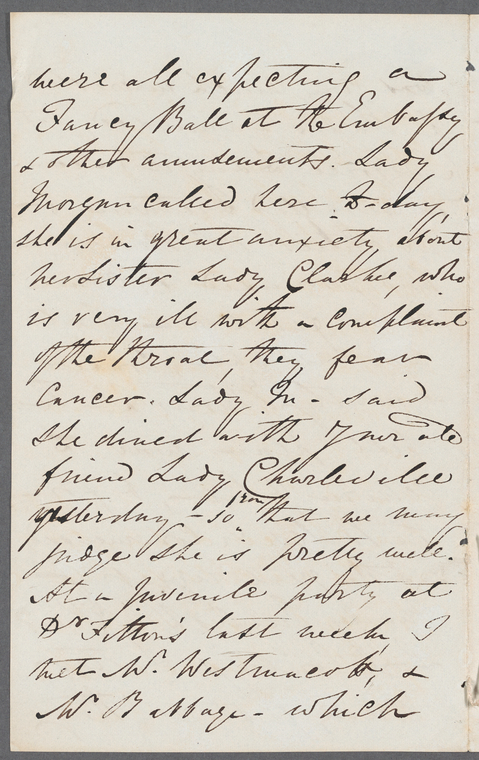 were all expecting a
Fancy Ball at the Embassy
& other amusements. Lady
Morgan called here to-day,
she is in great anxiety about
her sister Lady Clarke, who
is very ill with a complaint
of the throat, they fear
Cancer. Lady M- said
she dined with your old
friend Lady Charleville
yesterday - so from that we may
judge she is pretty well.
At a Juvenile party at
Dr Fitton's last week, I
met Mr. Westmacott, &
Mr. Babbage - which